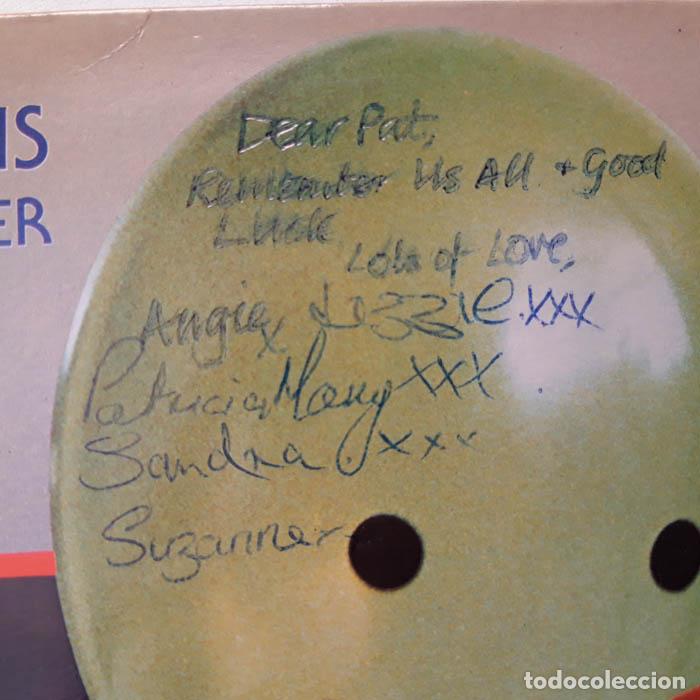 IS
ER
Dear Pat,
Remember Us All + Good
Luck
Lots of Love,
Angie x Lizzie.xxx
Patricia Mary XXX.
Sandra.xxx
Suzanne
todocoleccion